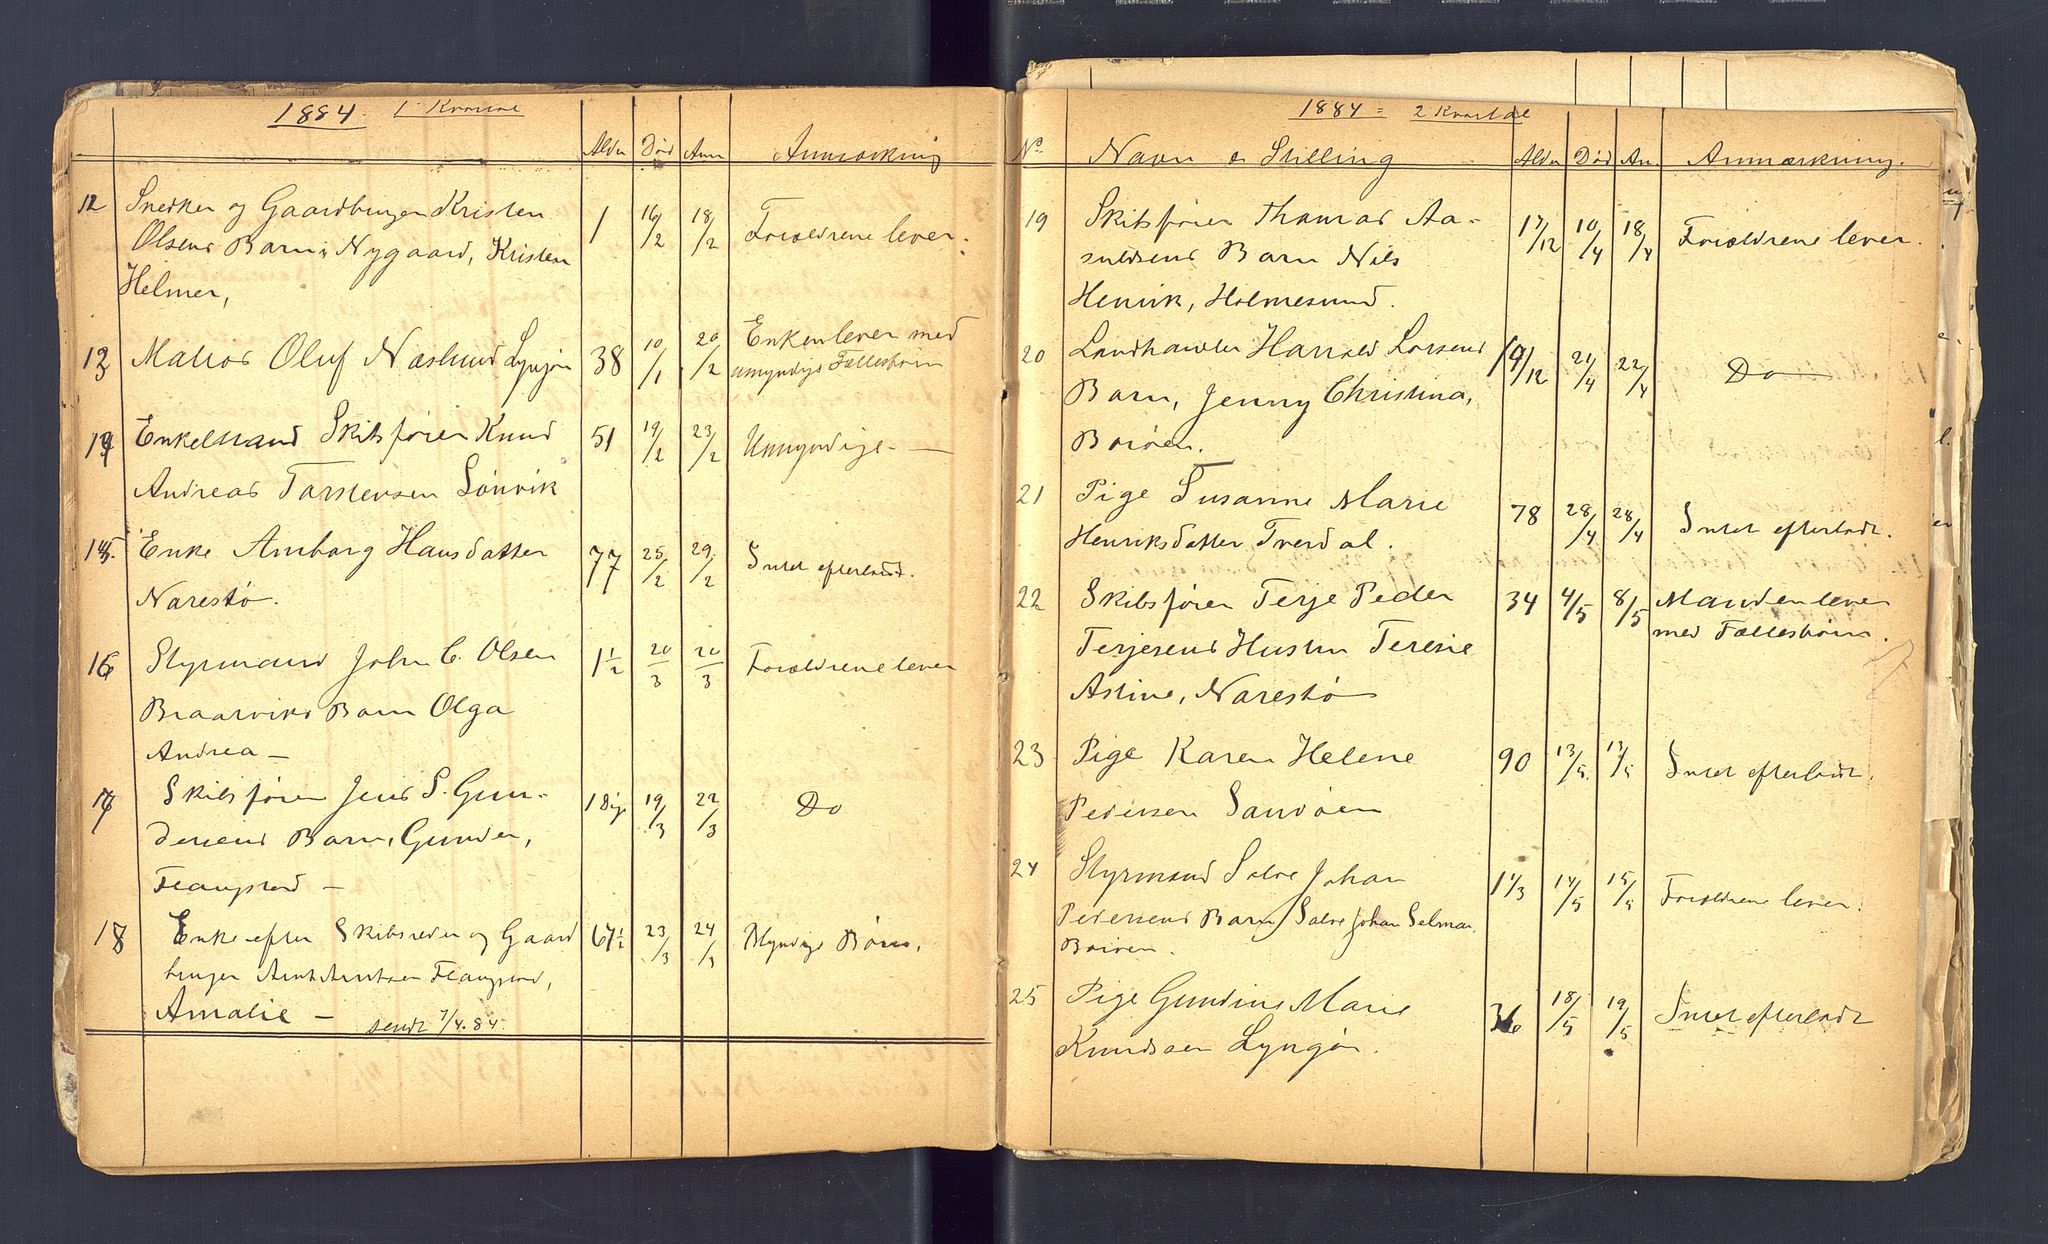 1884. 1 Kvartal
Alder Død Anm Anmærkning
12 Snedker og Gaardbruger Kristen 1 16/2 18/2 Forældrene lever.
Olsens Barn, Nygaard, Kristen
Helmer,
13 Matros Oluf Næslund Lyngør 38 10/1 20/2 Enken lever med
umyndige Fællesbørn
14 Enkemand Skibsfører Knud 51 19/2 23/2 Umyndige —
Andreas Tarstensen Sönvik
15. Enke Anborg Hansdatter 77 25/2 29/2 Intet efterladt.
Narestø.
16 Styrmand John C. Olsen 1 1/2 20/3 20/3 Forældrene lever
Braarviks Barn Olga
Andrea —
17 Skibsfører Jens S. Gun- 19/3 22/3 Do
dersens Barn, Gunder,
Flangstad —
18 Enke efter Skibsreder og Gaard 67 1/2 23/3 24/3 Myndige Børn,
bruger Amt Amtsen Flangstad,
Amalie —
sendt 7/4. 84.
1884 = 2 Kvartal
No Navn o Stilling Alder Død An. Anmærkning.
19 Skibsfører Thomas Aa- 17/12 10/4 18/4 Forældrene lever.
suldsens Barn Nils
Henrik, Holmesund.
20 Landhandler Harald Larsens 19/12 21/4 22/4 Do
Barn, Jenny Christina,
Borøen.
21 Pige Susanne Marie 78 28/4 28/4 Intet efterladt.
Henriksdatter Tverdal.
22 Skibsfører Terje Peder 34 4/5 8/5 Manden lever
med Fællesbørn.
Terjesens Hustru Terese
Astine, Narestø
23 Pige Karen Helene 90 13/5. 13/5 Intet efterladt.
Pedersen Sandøen
24 Styrmand Salve Johan 1 1/3 14/5 15/5 Forældrene lever.
Pedersens Barn Salve Johan Selmar.
Borøen.
25 Pige Gundine Marie 36 18/5 19/5 Intet efterladt
Knudsen Lyngør.